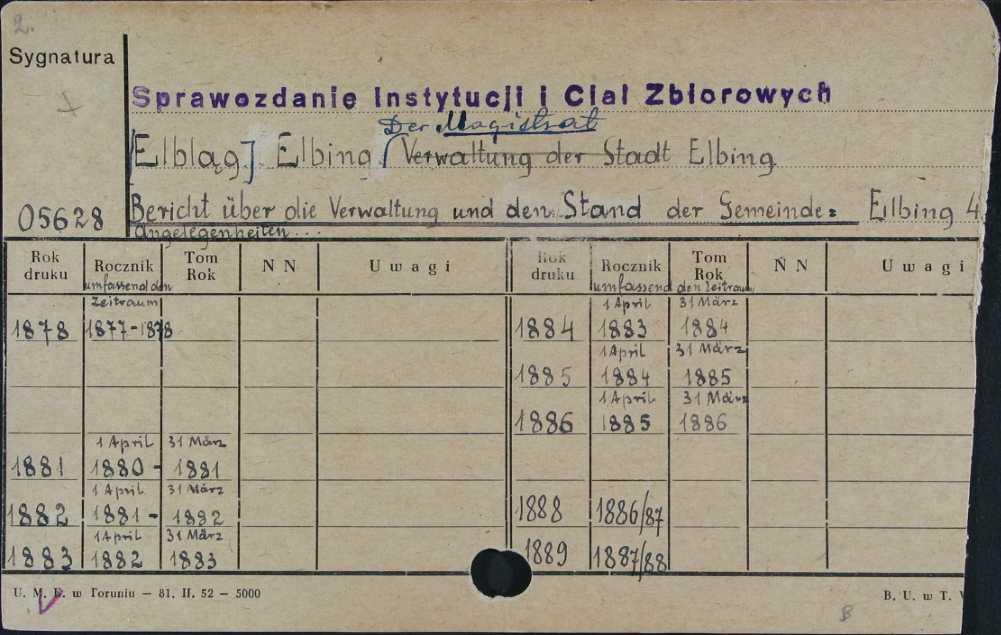 2.
Sygnatura
Sprawozdanie Instytucji i Cial Zbiorowych
Der Magistrat
[Elbląg] Elbing (Verwaltung der Stadt Elbing
05628
Bericht über die Verwaltung und den Stand der Gemeinde= Elbing 4
angelegenheiten...
Rok druku Rocznik Tom Rok N N U w a g i Rok druku Rocznik Tom Rok N N U w a g i
umfassend den umfassend den Zeitraum
Zeitraum 1 April 31 März
1878 1877-1878 1884 1883 1884
1 April 31 März
1885 1884 1885
1 April 31 März
1886 1885 1886
1 April 31 März
1881 1880 - 1881
1 April 31 März
1882 1881 - 1882 1888 1886/87
1 April 31 März
1883 1882 1883 1889 1887/88
U. M. K. w Toruniu — 81. II. 52 — 5000 B. U. w T.
B